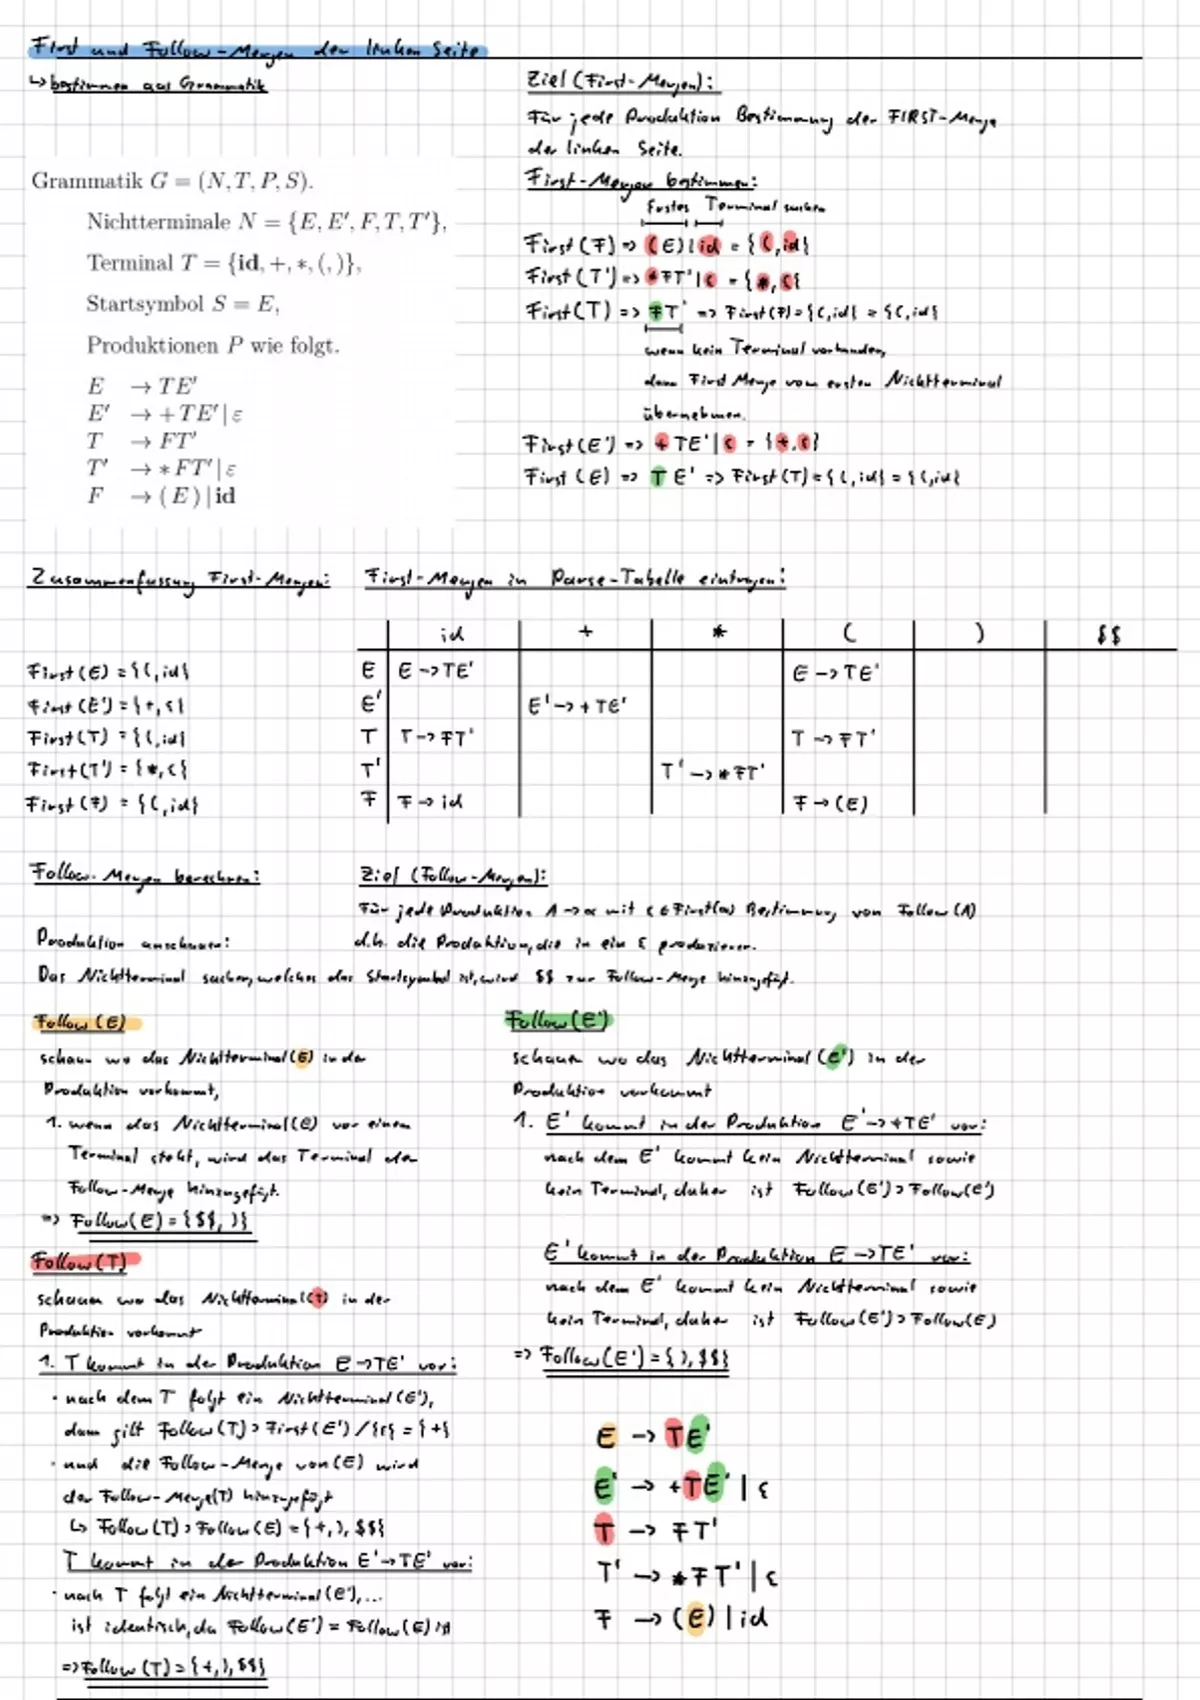 First und Follow-Mengen der linken Seite
↳ bestimmen aus Grammatik
Grammatik G = (N, T, P, S).
Nichtterminale N = {E, E', F, T, T'},
Terminal T = {id, +, *, (, )},
Startsymbol S = E,
Produktionen P wie folgt.
E → TE'
E' → + TE' | ε
T → FT'
T' → * FT' | ε
F → ( E ) | id
Ziel (First-Mengen):
Für jede Produktion Bestimmung der FIRST-Menge
der linken Seite.
First-Mengen bestimmen:
Erstes Terminal suchen
First(F) => (E) | id = {(, id}
First(T') => *FT' | ε = {*, ε}
First(T) => FT' => First(F) = {(, id} = {(, id}
wenn kein Terminal vorhanden,
dann First Menge vom ersten Nichtterminal
übernehmen.
First(E') => +TE' | ε = {+, ε}
First(E) => TE' => First(T) = {(, id} = {(, id}
Zusammenfassung First-Mengen:
First(E) = {(, id}
First(E') = {+, ε}
First(T) = {(, id}
First(T') = {*, ε}
First(F) = {(, id}
First-Mengen in Parse-Tabelle eintragen:
id + * ( ) $$
E E -> TE' E -> TE'
E' E' -> +TE'
T T -> FT' T -> FT'
T' T' -> *FT'
F F -> id F -> (E)
Follow-Mengen berechnen:
Ziel (Follow-Mengen):
Für jede Produktion A -> α mit ε ∈ First(α) Bestimmung von Follow(A)
d.h. die Produktion, die in ein ε produzieren.
Produktion anschauen:
Das Nichtterminal suchen, welches das Startsymbol ist, wird $$ zur Follow-Menge hinzugefügt.
Follow(E)
schauen wo das Nichtterminal (E) in der
Produktion vorkommt,
1. wenn das Nichtterminal (E) vor einem
Terminal steht, wird das Terminal der
Follow-Menge hinzugefügt.
=> Follow(E) = {$$, )}
Follow(T)
schauen wo das Nichtterminal (T) in der
Produktion vorkommt
1. T kommt in der Produktion E -> TE' vor:
· nach dem T folgt ein Nichtterminal (E'),
dann gilt Follow(T) ⊃ First(E') / {ε} = {+}
· und die Follow-Menge von (E) wird
der Follow-Menge(T) hinzugefügt
↳ Follow(T) ⊃ Follow(E) = {+, ), $$}
T kommt in der Produktion E' -> TE' vor:
· nach T folgt ein Nichtterminal (E'), ...
ist identisch, da Follow(E') = Follow(E) ist
=> Follow(T) = {+, ), $$}
Follow(E')
schauen wo das Nichtterminal (E') in der
Produktion vorkommt
1. E' kommt in der Produktion E' -> +TE' vor:
nach dem E' kommt kein Nichtterminal sowie
kein Terminal, daher ist Follow(E') ⊃ Follow(E')
E' kommt in der Produktion E -> TE' vor:
nach dem E' kommt kein Nichtterminal sowie
kein Terminal, daher ist Follow(E') ⊃ Follow(E)
=> Follow(E') = {), $$}
E -> TE'
E' -> +TE' | ε
T -> FT'
T' -> *FT' | ε
F -> (E) | id